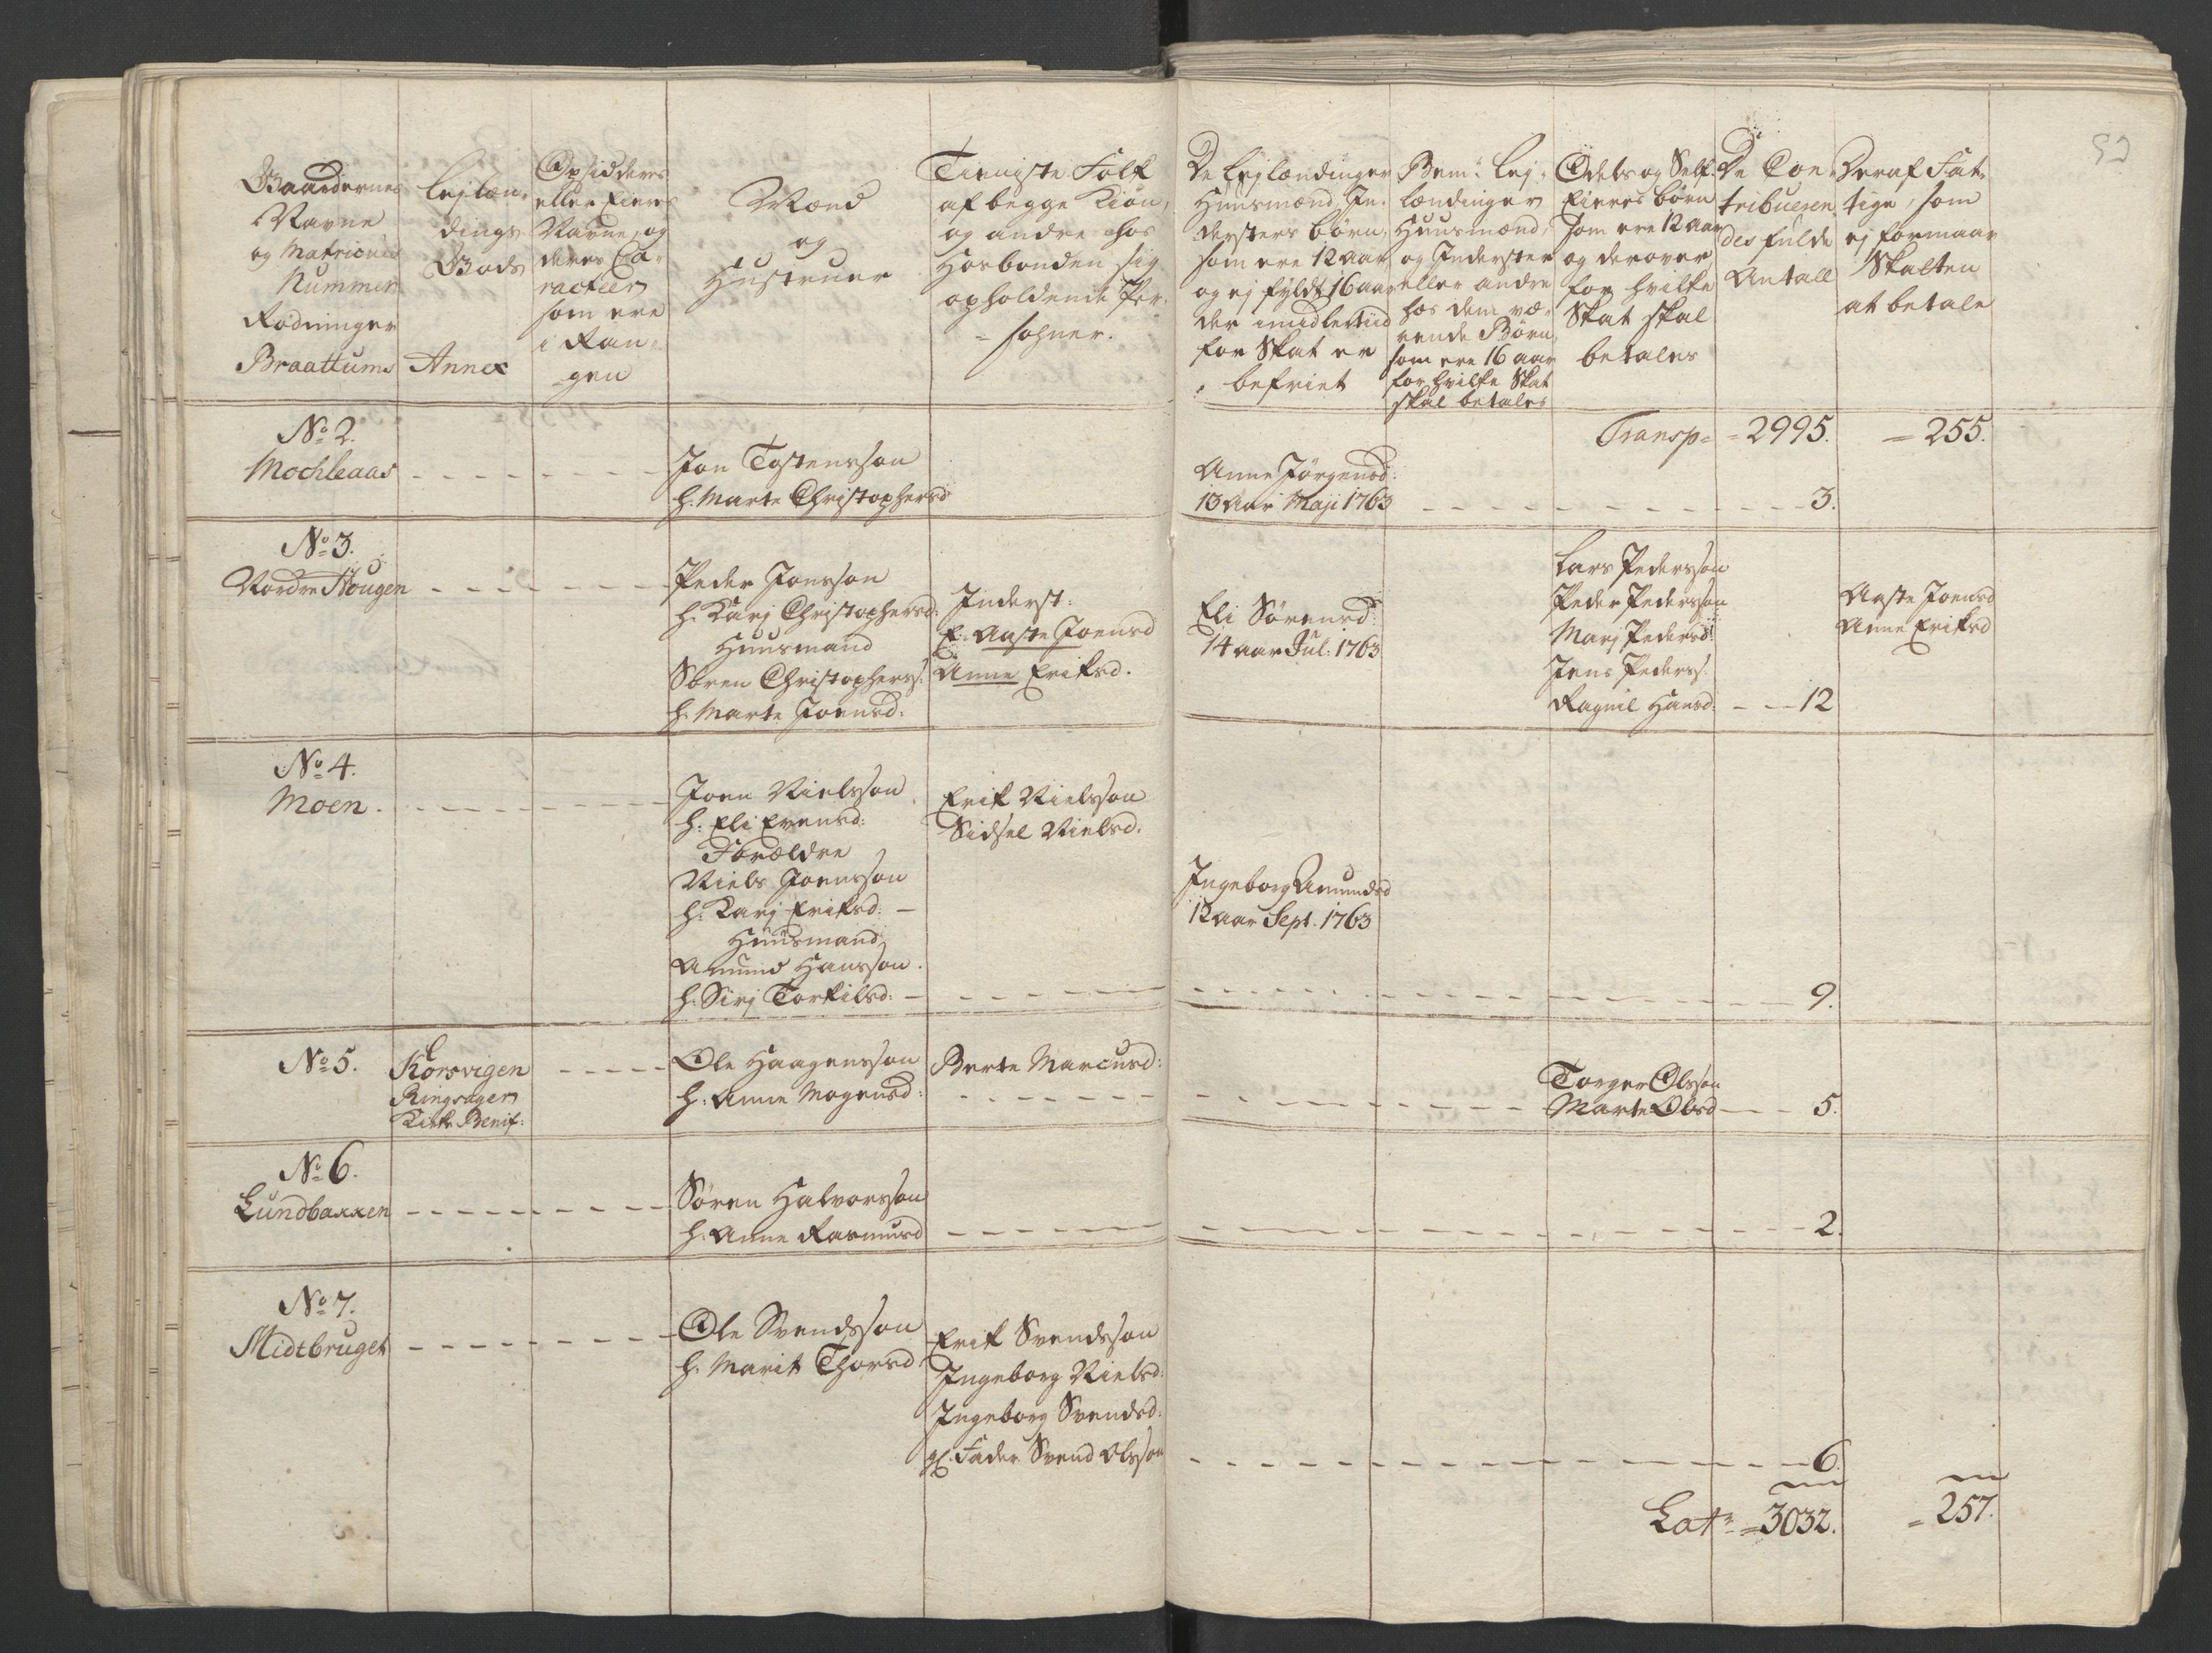 Gaardernes
Navne
og Matricuns
Nummer
Rodninger
Braattums
Lejlæn-
dings
Gods
Annex
Opsidderes
eller Eieres
Navne, og
deres Ca-
racteer
som ere
i Ran-
gen
Mænd
og
Hustruer
Tieniste Folk
af begge Kiøn,
og andre hos
Hosbonden sig
opholdende Per-
sohner.
De Lejlændinger
Huusmænd, In-
dersters børn,
som ere 12 aar
og ej fyldt 16 aar
der imidlertiid
for Skat er
befriet
Bem: Lej-
lændinger
Huusmænd,
og Inderster
eller andre
hos dem væ-
rende Børn,
som ere 16 aar
for hvilke Skat
skal betales
Odels og Self-
Eieres børn
som ere 12 aar
og derover
for hvilke
Skat skal
betales
De Con-
tribueren
des fulde
Antall
Deraf Fat-
tige, som
ej formaar
Skatten
at betale
52
Transp = 2995. = 255.
No 2.
Mochleaas
Jon Tostensson
h. Marte Christophersd
Anne Jörgensd:
13 Aar Maji 1763
3.
No 3.
Nordre Hougen
Peder Jonsson
h. Karj Christophersd:
Huusmand
Sören Christophers:
h. Marte Joensd:
Inderst:
E. Aaste Joensd
Anne Eriksd.
Eli Sörensd:
14 aar Jul: 1763
Lars Pedersson
Peder Pedersson
Marj Pedersd:
Jens Peders:
Ragnil Hansd:
12
Aaste Joensd
Anne Eriksd
No 4.
Moen.
Joen Nielsson
h: Eli Evensd:
Forældre
Niels Joensson
h: Karj Eriksd:
Huusmand
Amund Hansson.
h: Sirj Torkilsd:
Erik Nielsson
Sidsel Nielsd:
Ingeborg Amundsd
12 aar Sept. 1763
9.
No 5.
Korsvigen
Ringsager
Kirke Benif:
Ole Haagensson
h: Anne Mogensd:
Berte Marcusd:
Torger Olsson
Marte Olsd
5.
No 6.
Lundbakken
Sören Halvorsson
h: Anne Rasmusd
2.
No 7.
Midtbruget
Ole Svendsson
h: Marit Thorsd
Erik Svendsson
Ingeborg Nielsd:
Ingeborg Svendsd:
gl. Fader Svend Olsson
6.
Lat: = 3032. = 257.